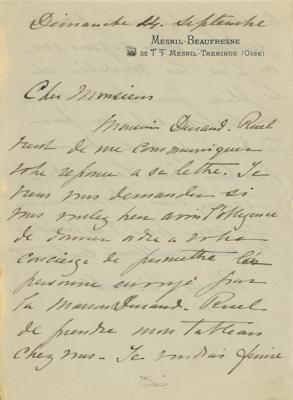 Dimanche 24 Septembre
MESNIL-BEAUFRESNE
MESNIL-THERIBUS (OISE)
Cher Monsieur
Monsieur Durand-Ruel
vient de me communiquer
votre reponse a sa lettre. Je
veux vous demander si
vous voulez bien avoir l'obligence
de donner ordre a votre
concierge de permettre
personne envoyé par
la Maison Durand-Ruel
de prendre mon tableau
chez vous - Je voudrais finir